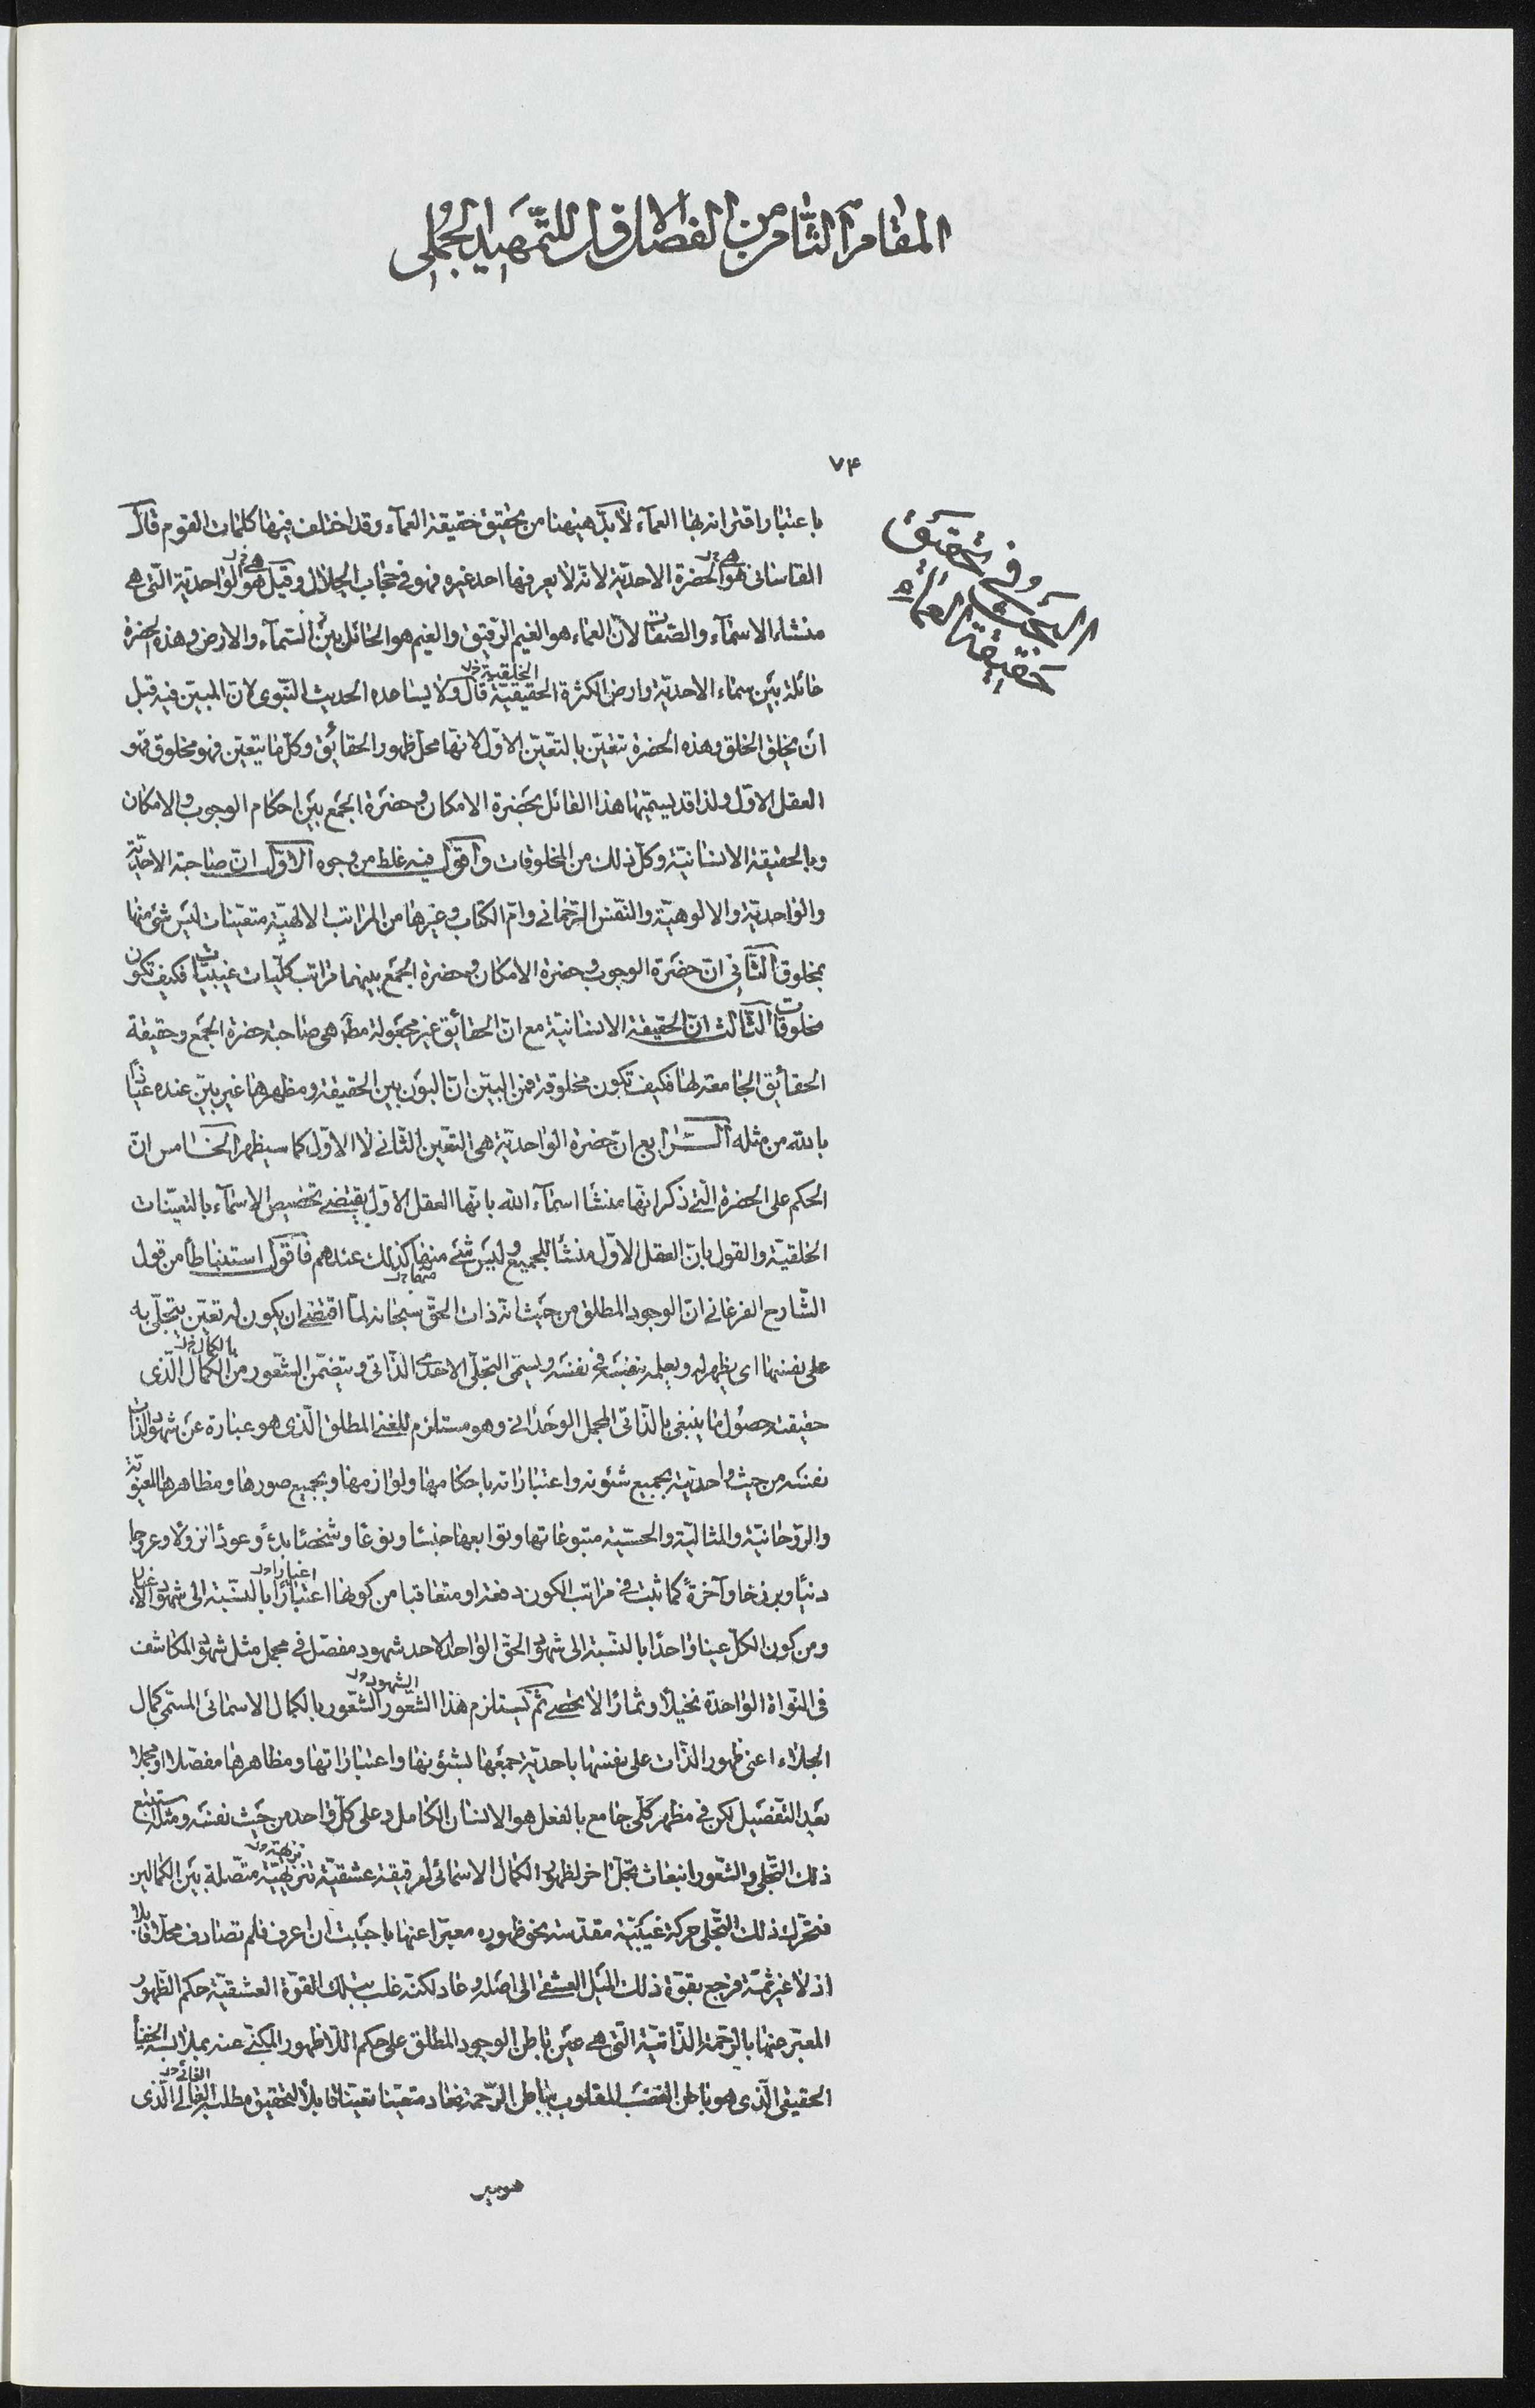 المقام الثامن من الفصل الاول للتمهيد الجملى
٧۴
البحث فى تحقيق
حقيقة العماء
باعتبار اقترانه بها العمآء لا بدّ هيهنا من تحقيق حقيقة العمآء وقد اختلف فيها كلمات القوم قال
القاسانى هو الحضرة الاحديّة لانّه لا يعرفها احد غيره فهو فى حجاب الجلال وقيل هو الواحديّة الّتى هى
منشاء الاسمآء والصّفات لانّ العماء هو الغيم الرّقيق والغيم هو الحائل بين السّمآء والارض وهذه الحضرة
حائلة بين سماء الاحديّة وارض الكثرة الحقيقيّة قال ولا يساعده الحديث النّبوى لانّ المبيّن فيه قبل
ان يخلق الخلق وهذه الحضرة تتعيّن بالتعيّن الاوّل لانّها محلّ ظهور الحقائق وكلّ ما يتعيّن فهو مخلوق فهو
العقل الاوّل ولذا قد يسمّيها هذا القائل بحضرة الامكان وحضرة الجمع بين احكام الوجوب والامكان
وبالحقيقة الانسانيّة وكلّ ذلك من المخلوقات واقول فيه غلط من وجوه الاوّل انّ صاحبة الاحديّة
والواحديّة والالوهيّة والنّفس الرّحمانى وامّ الكتاب وغيرها من المراتب الالهيّة متعيّنات ليس شئ منها
بمخلوق الثّانى انّ حضرة الوجوب وحضرة الامكان وحضرة الجمع بينهما مراتب كلّيات غيبيّات فكيف تكون
مخلوقات الثّالث انّ الحقيقة الانسانيّة مع انّ الحقائق غير مجعولة مط هى صاحبة حضرة الجمع وحقيقة
الحقائق الجامعة لها فكيف تكون مخلوقة فمن البيّن انّ البون بين الحقيقة ومظهرها غير بيّن عنده عياذًا
بالله من مثله الرّابع انّ حضرة الواحديّة هى التعيّن الثّانى لا الاوّل كما سيظهر الخامس انّ
الحكم على الحضرة الّتى ذكر انّها منشأ اسمآء الله بانّها العقل الاوّل يقتضى تخصيص الاسمآء بالتعيّنات
الخلقيّة والقول بانّ العقل الاوّل منشأ للجميع وليس شئ منها كذلك عندهم فاقول استنباطًا من قول
الشّارح الفرغانى انّ الوجود المطلق من حيث انّه ذات الحقّ سبحانه لمّا اقتضى ان يكون له تعيّن يتجلّى به
على نفسها اى يظهر له ويعلمه بنفسه فى نفسه ويسمّى التجلّى الاحدى الذّاتى ويتضمّن الشّعور من الكمال الّذى
حقيقته حصول ما ينبغى بالذّاتى المجمل الوحدانى وهو مستلزم للغنى المطلق الّذى هو عبارة عن شهود الذّات
نفسه من حيث واحديّته بجميع شئونه واعتباراته باحكامها ولوازمها وبجميع صورها ومظاهرها المعنويّة
والرّوحانيّة والمثاليّة والحسّيّة متبوعاتها وتوابعها جنسًا ونوعًا وشخصًا بدءً وعودًا نزولًا وعروجا
دنيًا وبرزخا وآخرةً كما ثبت فى مراتب الكون دفعة او متعاقبا من كونها اعتبارًا بالنّسبة الى شهود الاغيار
ومن كون الكلّ عينا واحدًا بالنّسبة الى شهود الحقّ الواحد الاحد شهود مفصّل فى مجمل مثل شهود المكاشف
فى النّواة الواحدة نخيلًا وثمارًا لا تحصى ثمّ يستلزم هذا الشّعور الشّعور بالكمال الاسمائى المسمّى كمال
الجلاء اعنى ظهور الذّات على نفسها باحديّة جمعها بشئونها واعتباراتها ومظاهرها مفصّلا او مجملا
بعد التّفصيل لكن فى مظهر كلّى جامع بالفعل هو الانسان الكامل وعلى كلّ واحد من حيث نفسه ومثله استتبع
ذلك التّجلى والشّعور انبعاث تجلّ اخر لظهور الكمال الاسمائى لرقيقة عشقيّة تنزيهيّة متّصلة بين الكمالين
فتحرّك ذلك التّجلى حركة غيبيّة مقدّسة نحو ظهوره معبّرا عنها باحببت ان اعرف فلم تصادف محلّا قابلا
اذ لا غير ثمّة فرجع بقوّة ذلك الميل العشقى الى اصله وعاد لكنّه غلب بتلك القوّة العشقيّة حكم الظّهور
المعبّر عنها بالرّحمة الذّاتيّة الّتى هى عين باطن الوجود المطلق على حكم اللّا ظهور المكنّى عنه بملابسة الخفاء
الحقيقى الّذى هو باطن الغضب المغلوب بباطن الرّحمة فعاد متعيّنا تعيّنا قابلًا لتحقيق مطلبه الغائى الّذى
هو عين